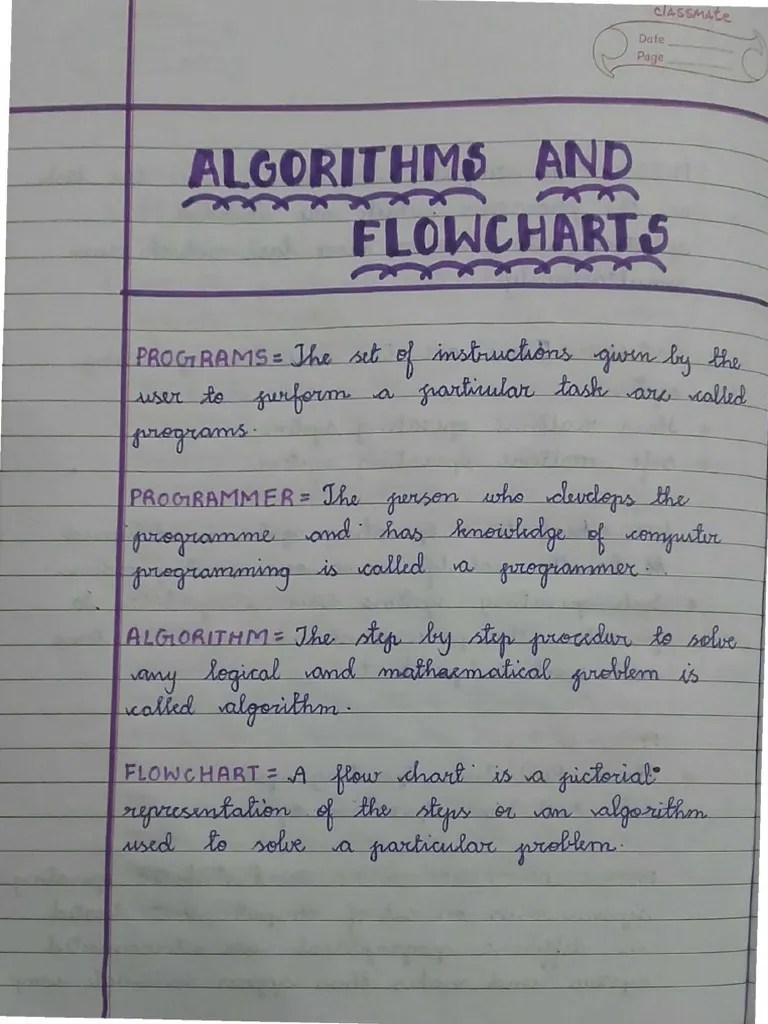 CLASSMATE
Date
Page
ALGORITHMS AND
FLOWCHARTS
PROGRAMS = The set of instructions given by the
user to perform a particular task are called
programs.
PROGRAMMER = The person who develops the
programme and has knowledge of computer
programming is called a programmer.
ALGORITHM = The step by step procedur to solve
any logical and mathaematical problem is
called algorithm.
FLOWCHART = A flow chart is a pictorial
representation of the steps or an algorithm
used to solve a particular problem.